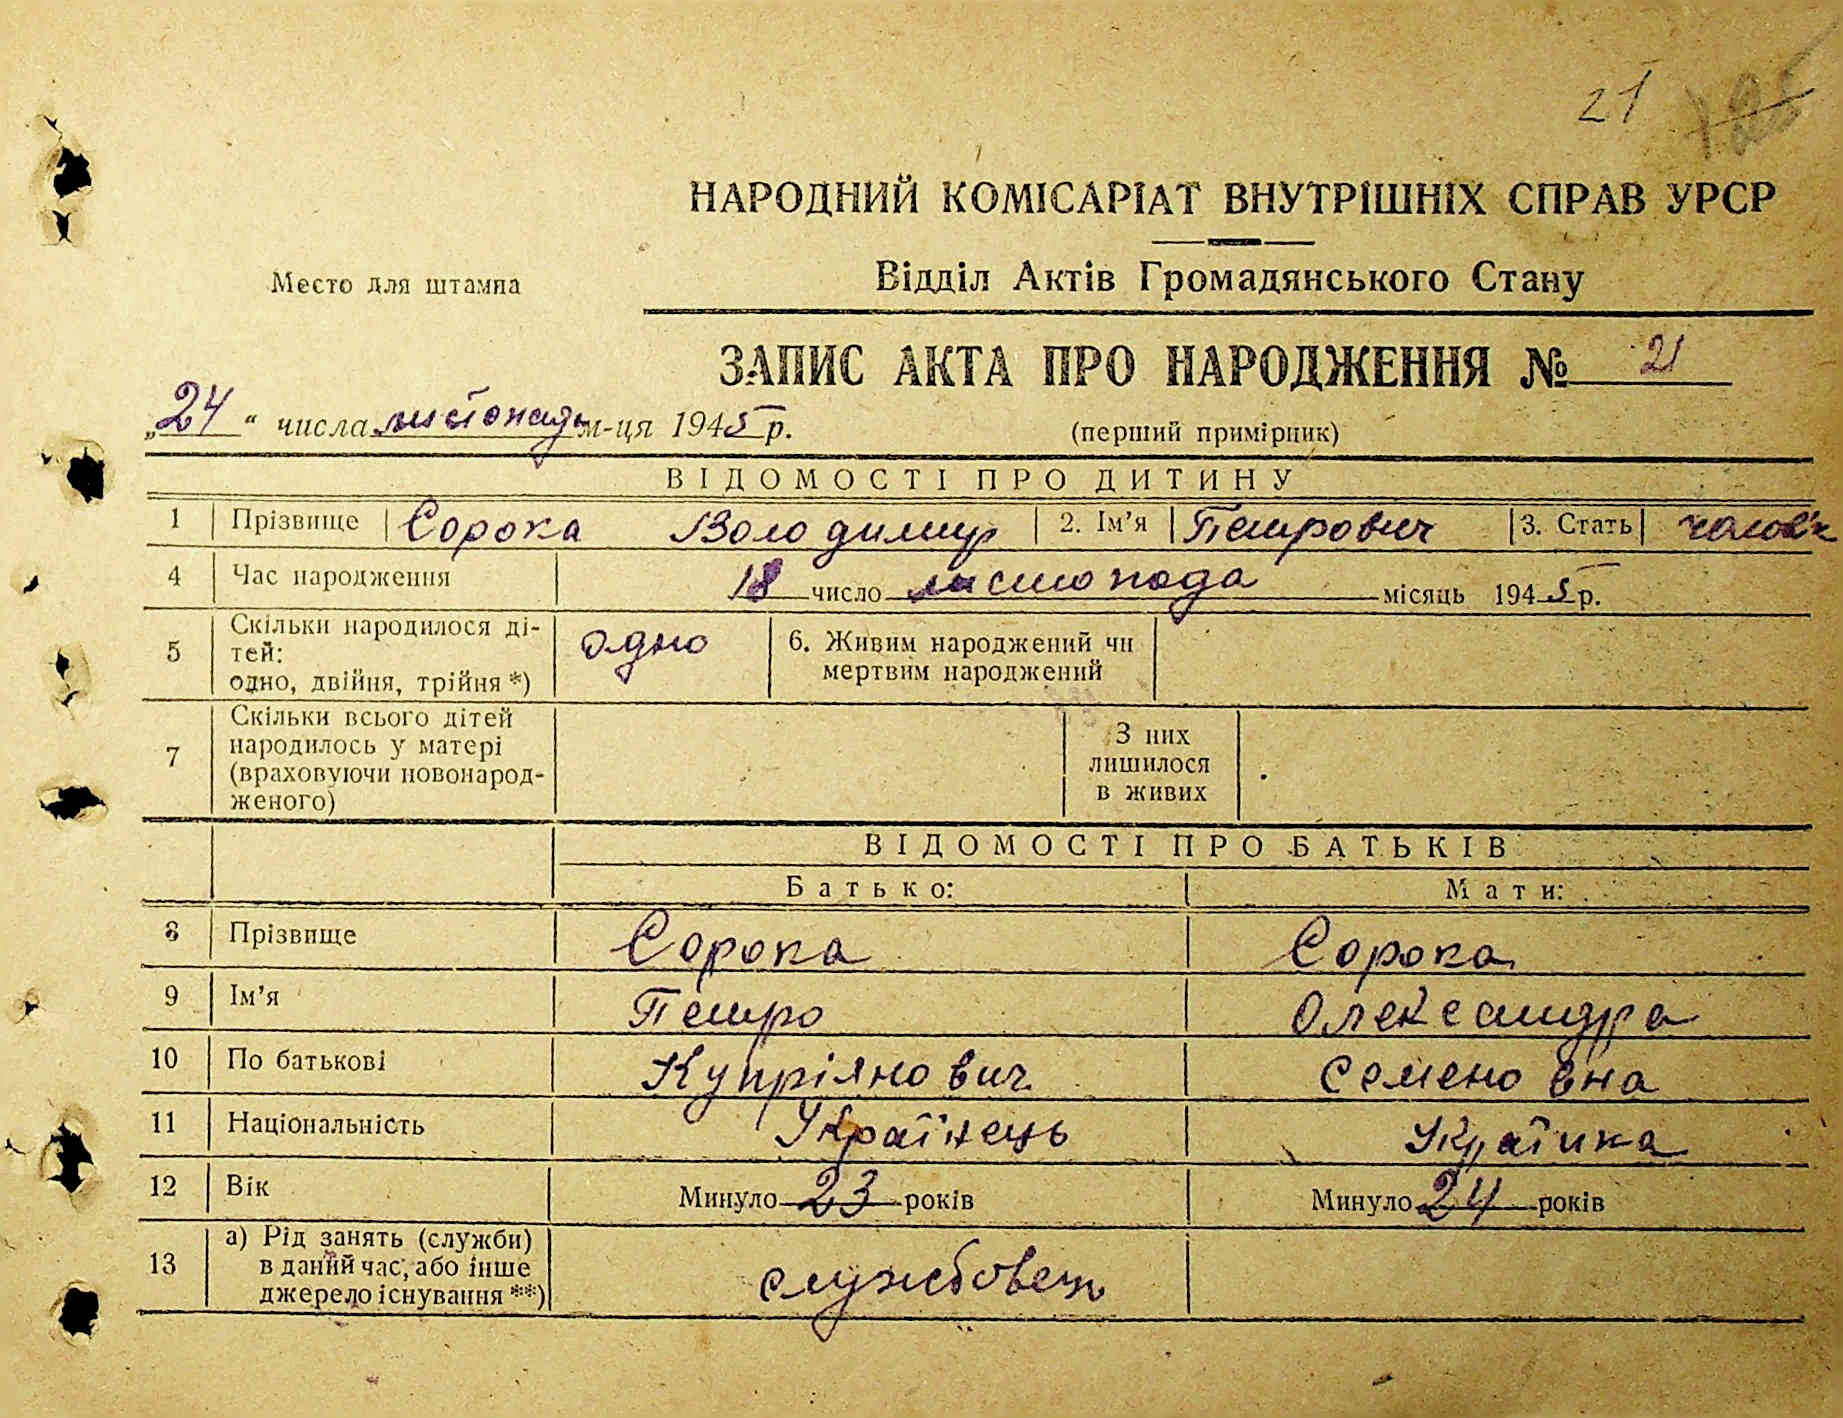 21
НАРОДНИЙ КОМІСАРІАТ ВНУТРІШНІХ СПРАВ УРСР
Место для штампа
Відділ Актів Громадянського Стану
ЗАПИС АКТА ПРО НАРОДЖЕННЯ № 21
„24“ числа листопад м-ця 1945 р.
(перший примірник)
ВІДОМОСТІ ПРО ДИТИНУ
1 Прізвище Сорока Володимир 2. Ім’я Петрович 3. Стать чолов'к
4 Час народження 18 число листопада місяць 1945 р.
5 Скільки народилося ді-
тей:
одно, двійня, трійня *)
одно
6. Живим народжений чи
мертвим народжений
7 Скільки всього дітей
народилось у матері
(враховуючи новонарод-
женого)
З них
лишилося
в живих
ВІДОМОСТІ ПРО БАТЬКІВ
Батько: Мати:
8 Прізвище Сорока Сорока
9 Ім’я Петро Олександра
10 По батькові Купріянович Семеновна
11 Національність Українець Українка
12 Вік Минуло 23 років Минуло 24 років
13 а) Рід занять (служби)
в даний час, або інше
джерело існування **)
службовець